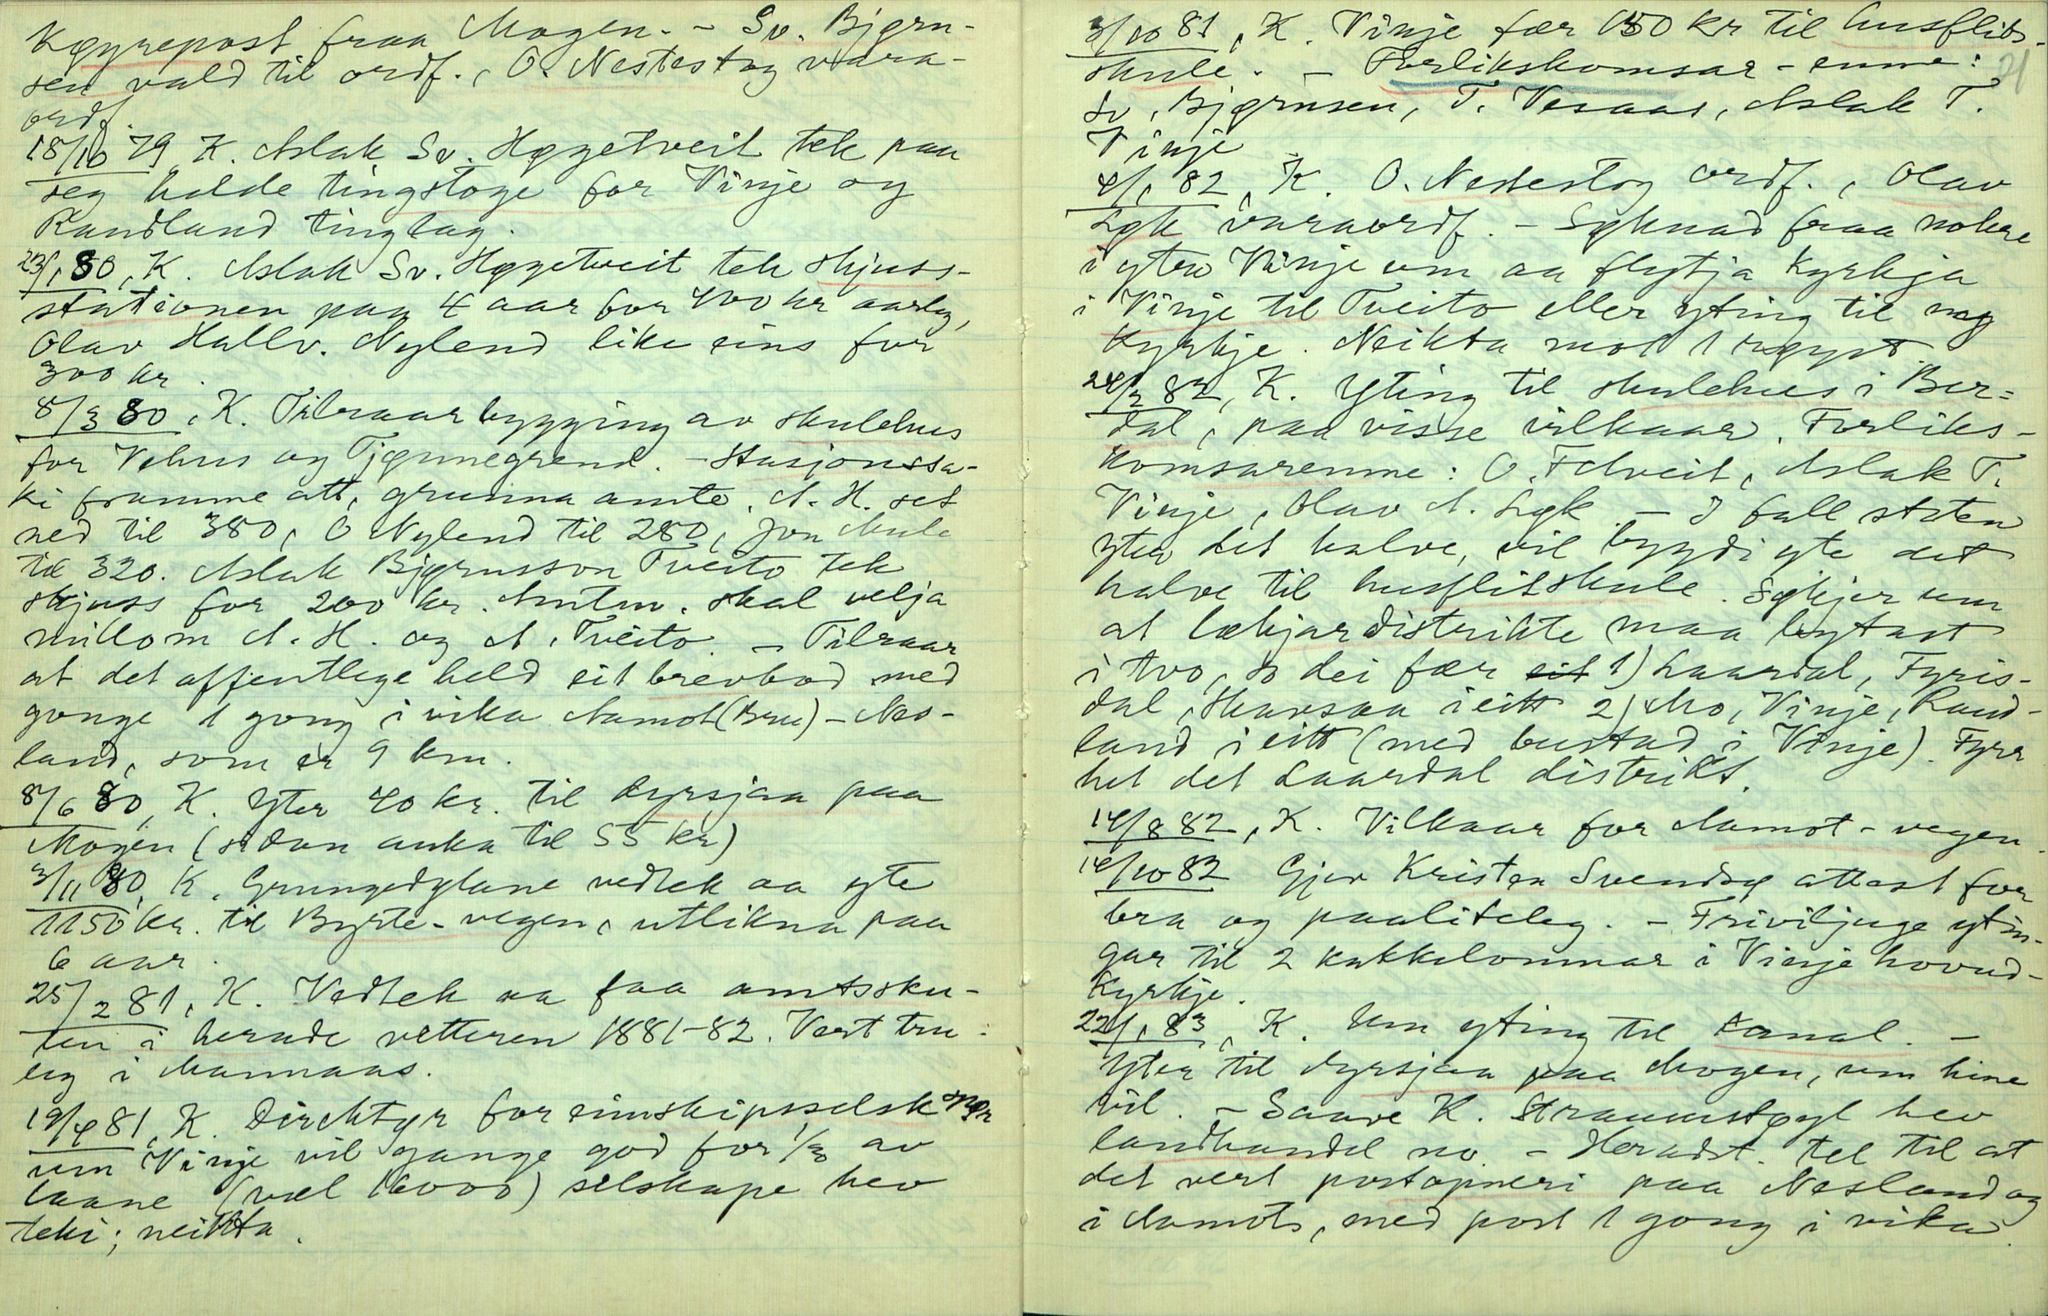 Køyrepost fraa Mogen. - Sv. Bjørn-
sen vald til ordf., O. Nestestog vara-
ordf.
18/10 79, K. Aslak Sv. Høgetveit tek paa
seg halde tingstoge for Vinje og
Raudland tinglag.
23/1 80, K. Aslak Sv. Høgetveit tek skjuss-
stationen paa 4 aar for 400 kr aarleg,
Olav Hallv. Nylend like eins for
300 kr.
8/3 80, K. Tilraar bygging av skulehus
for Vehus og Tjønnegrend. - Stasjonssa-
ki framme att, grunna amte. A. H. set
ned til 380, O Nylend til 280, Jon
til 320. Aslak Bjørnsson Tveito tek
skjuss for 200 kr. Amtm. skal velja
millom A. H. og A. Tveito. - Tilraar
at det offentlege held eit brevbod med
gonge 1 gong i vika Aamot (Bru) - Nes-
land, som er 9 km.
8/6 80, K. Yter 40 kr. til dyrsjaa paa
Mogen (sidan auka til 55 kr)
3/11 80, K. Grungedølane vedtek aa yte
1150 kr. til Byrte-vegen, utlikna paa
6 aar.
25/2 81, K. Vedtek aa faa amtssku-
len i herade vetteren 1881-82. Vert tru-
leg i Mannaas.
19/4 81, K. Direktør for eimskipsselsk spør
um Vinje vil gange god for 1/3 av
laane (vel 16000) selskape hev
teki; neikta.
3/10 81, K. Vinje fær 150 kr til husflids-
skule. - Forlikskomsar-emne: 21
Sv. Bjørnsen, T. Vesaas, Aslak T.
Vinje
4/1 82, K. O. Nestestog ordf., Olav
Løk varaordf. - Søknad fraa nokre
i ytre Vinje um aa flytja kyrkja
i Vinje til Tveito eller yting til nøg
kyrkje. Neikta mot 1 røyst
24/3 82, K. Yting til skulehus i Bør-
dal, paa visse vilkaar. Forliks-
komsaremne: O. Edtveit, Aslak T.
Vinje, Olav A. Løk. - I fall staten
yter det halve, vil bygdi yte det
halve til husflitskule. Søkjer um
at lækjardistrikte maa bytast
i tvo, so dei fær eit 1) Laardal, Fyris-
dal, Skavsaa i eitt 2) Mo, Vinje, Raud-
land i eitt (med bustad i Vinje). Fyrr
het det Laardal distrikt.
14/8 82, K. Vilkaar for Aamot-vegen.
14/10 82 Gjev Kristen Svendsø attest for
bra og paaliteleg. - Friviljuge ytin-
gar til 2 kakkelomnar i Vinje hovud-
kyrkje.
22/1 83, K. Um yting til kanal. -
Yter til dyrsjaa paa Mogen, um hine
vil. - Saave K. Straumstøyl hev
landhandel no. - Heradst. tel til at
det vert postopneri paa Nesland og
i Aamot, med post 1 gong i vika.